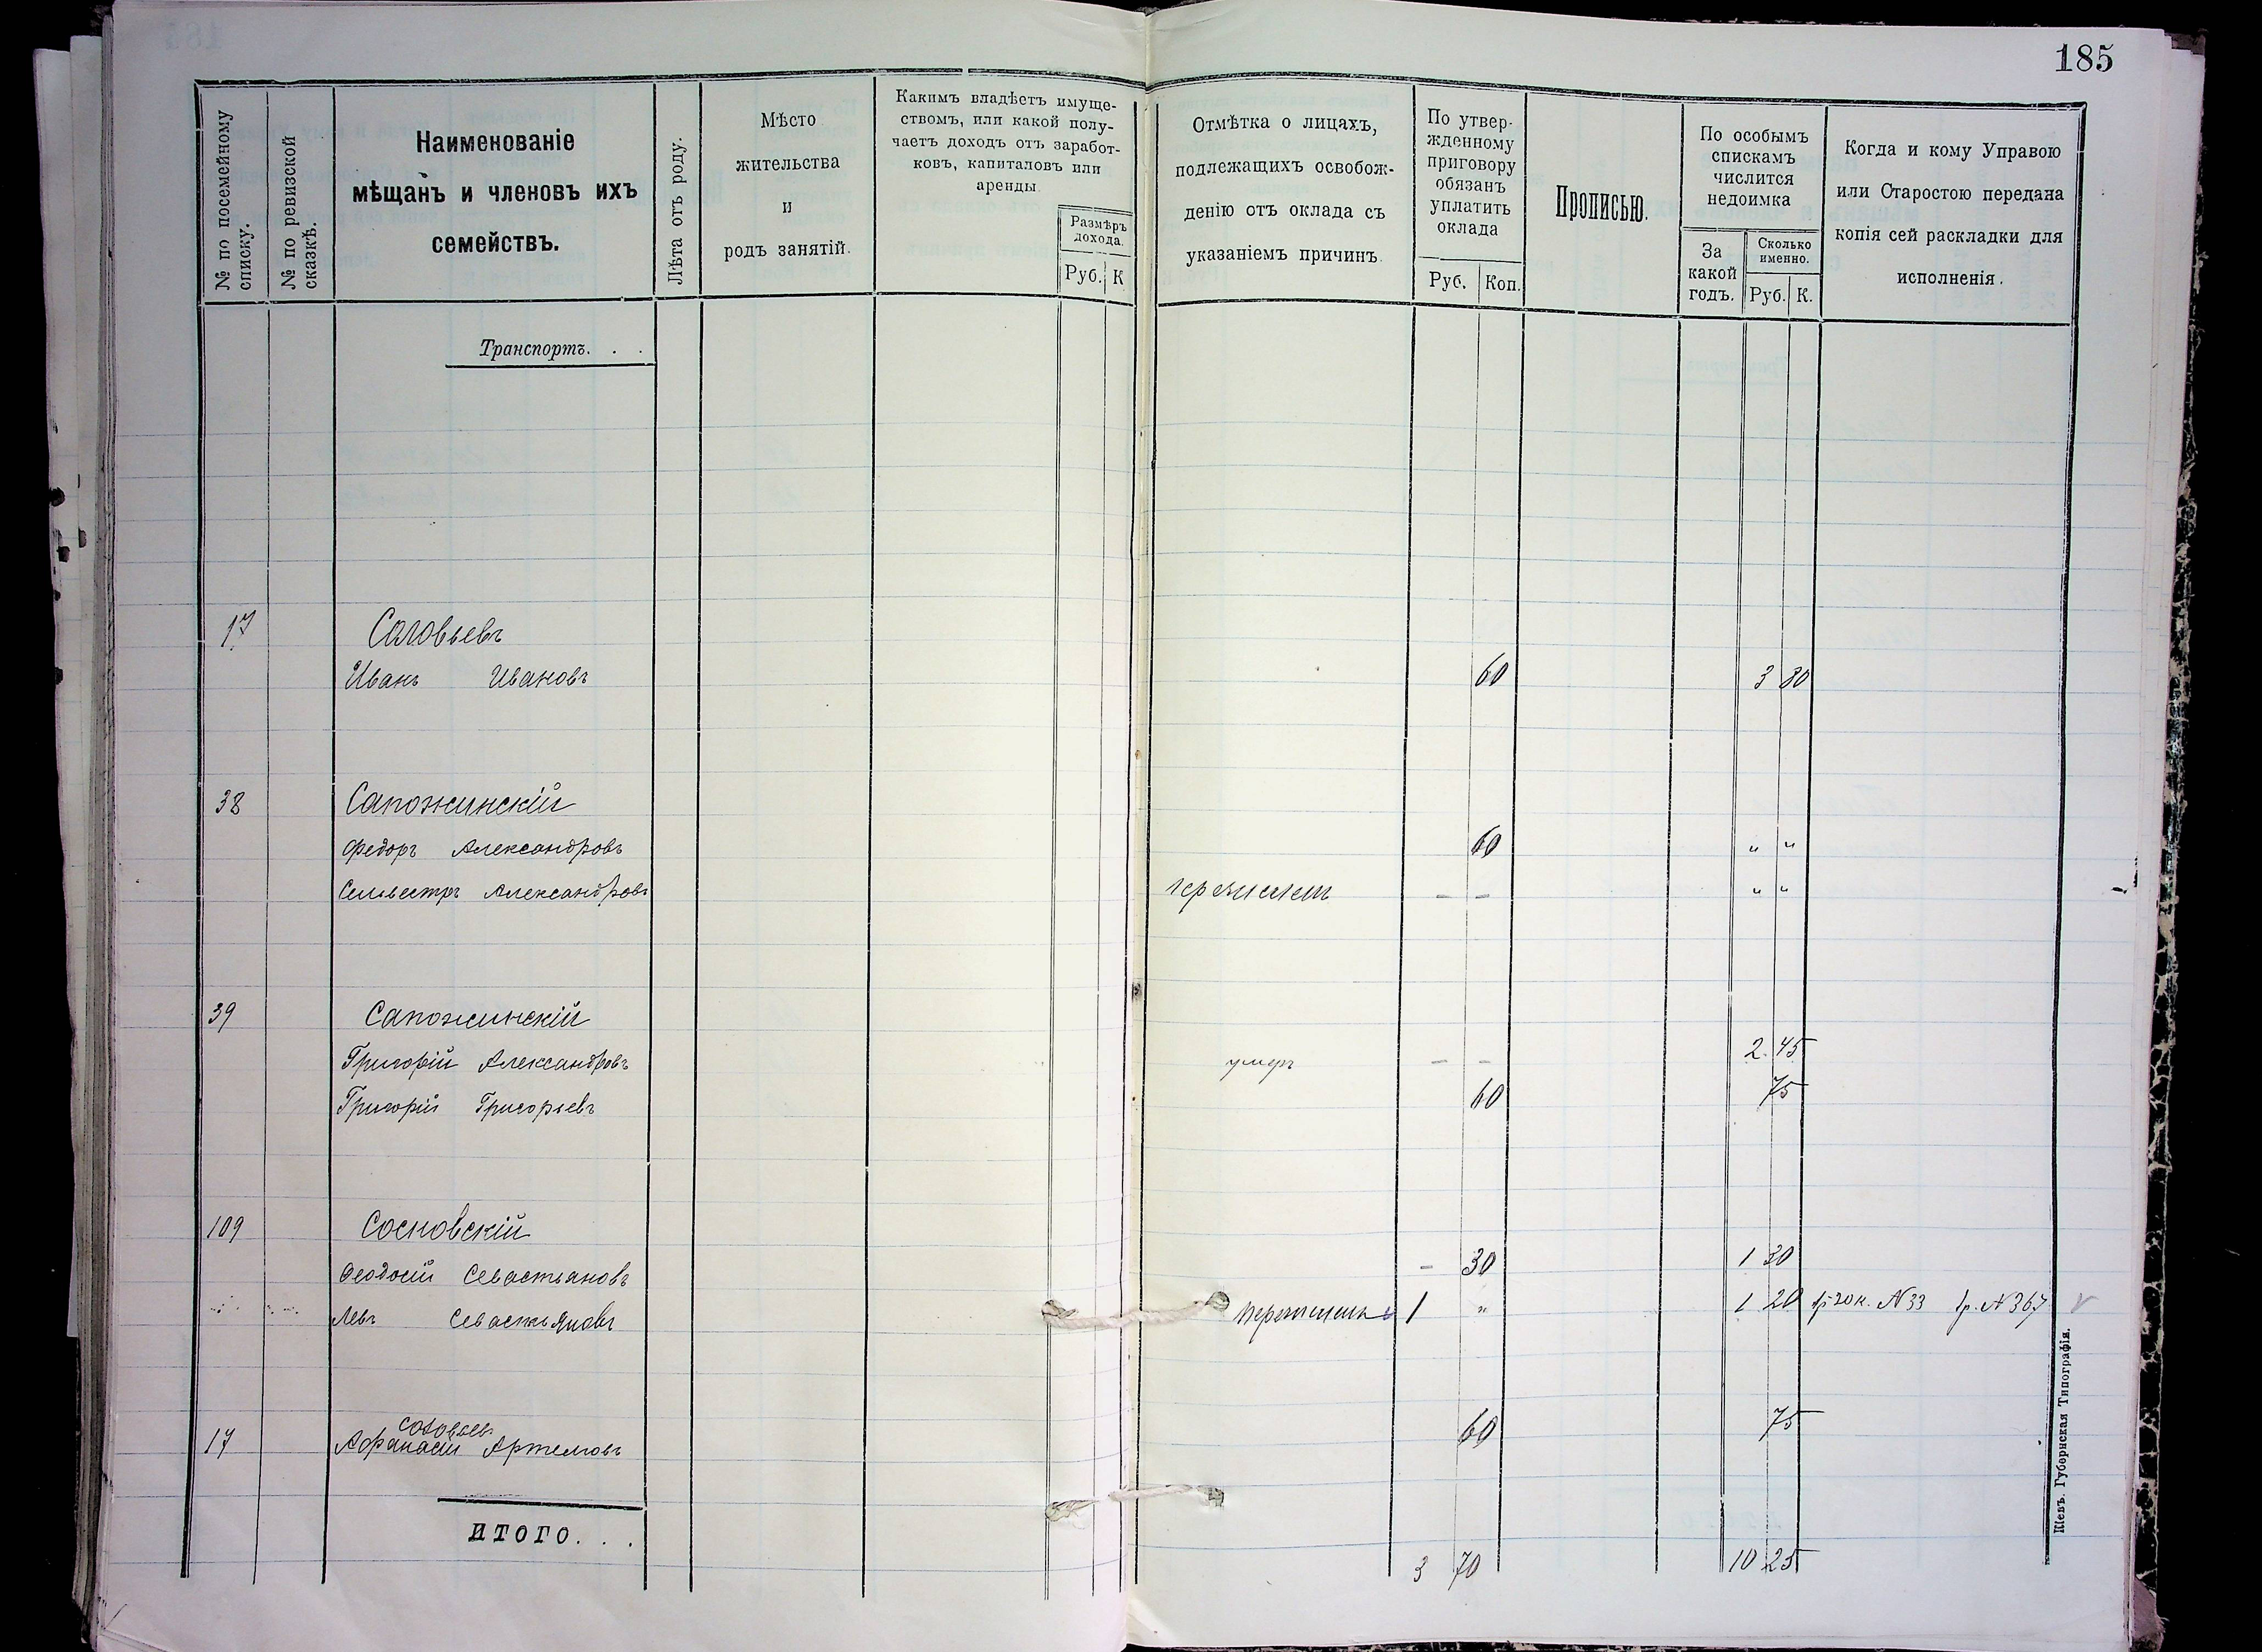 185
№ по посемейному списку.
№ по ревизской сказкѣ.
Наименованіе
мѣщанъ и членовъ ихъ
семействъ.
Лѣта отъ роду.
Мѣсто
жительства
и
родъ занятій.
Какимъ владѣетъ имуще-
ствомъ, или какой полу-
чаетъ доходъ отъ заработ-
ковъ, капиталовъ или
аренды.
Размѣръ
дохода.
Руб. К
Отмѣтка о лицахъ,
подлежащихъ освобож-
денію отъ оклада съ
указаніемъ причинъ.
По утвер-
жденному
приговору
обязанъ
уплатить
оклада
Руб. Коп.
Прописью.
По особымъ
спискамъ
числится
недоимка
За
какой
годъ.
Сколько
именно.
Руб. К.
Когда и кому Управою
или Старостою передана
копія сей раскладки для
исполненія.
Транспортъ. . .
17 Соловьевъ
Иванъ Ивановъ 60 3 30
38 Сапожинскій
Федоръ Александровъ 60 " "
Сельвестръ Александровъ - - " "
39 Сапожинскій
Григорій Александровъ умеръ - - 2 45
Григорій Григорьевъ 60 75
109 Сосновскій
Феодосій Севастьяновъ - 30 1 30
Левъ Севастьяновъ 1 " 1 20 N 33 N 367
Соловьевъ
17 Афанасій Артемовъ 60 75
ИТОГО. . .
3 70 10 25
Кіевъ. Губернская Типографія.